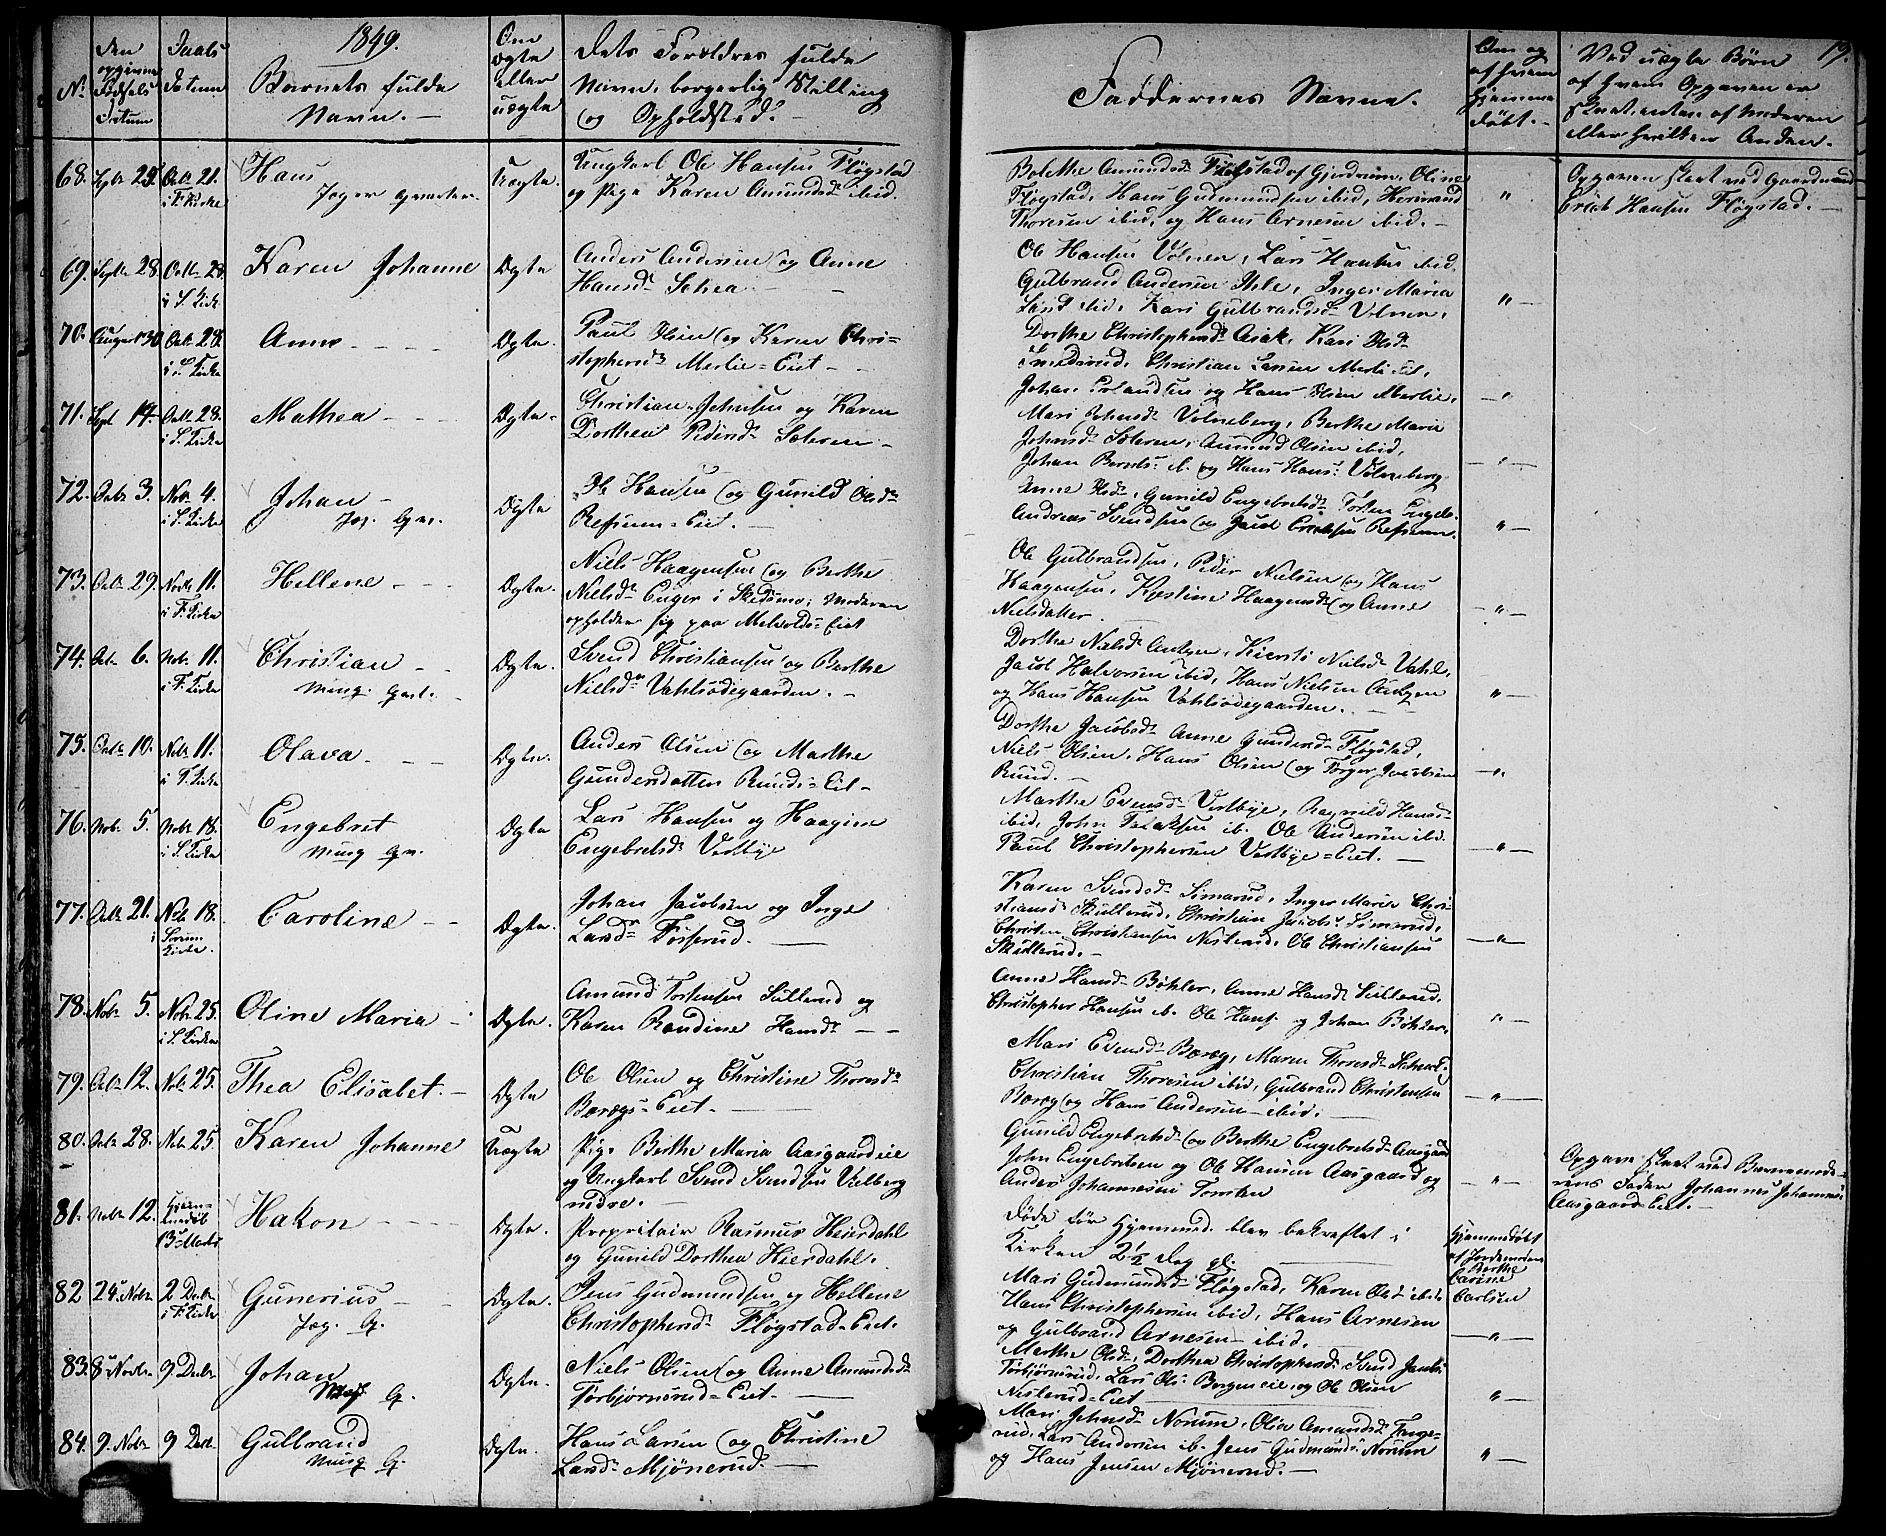 1849.
19.
No
den opgivne Fødsels Datum
Daabs Datum
Barnets fulde Navn. —
Om ægte eller uægte
Dets Forældres fulde Navn, borgerlig Stilling og Opholdsted. —
Faddernes Navne. —
Om og af hvem hjemmedøbt. —
Ved uægte Børn af hvem Opgaven er skeet, enten af Moderen eller hvilken Anden. —
68. Septr 25. Octr 21. i F. Kirke
Hans
Uægte.
Ungkarl Ole Hansen Fløgstad
og Pige Karen Amundsdr ibid.
Bolethe Amundsdr Fløgstad af Gjerdrum, Oline
Fløgstad, Hans Gudmundsen ibid,
Thoresen ibid, og Hans Arnesen ibid. —
"
Opgaven skeet ved Gaardmand
Erich Hansen Fløgstad. —
69. Septr 28. Octr 28. i S. Kirke
Karen Johanne
Ægte
Anders Andersen og Anne
Hansdr
Ole Hansen Volmen, Lars Hansen ibid,
Gulbrand Andersen, Inger Maria
Larsdr ibid, Kari Gulbrandsdr Volmen.
" —
70. August 30 Octr 28. i S. Kirke
Anne — — —
Ægte.
Paul Olsen og Karen Chri-
stophersdr Merlie-Eiet —
Dorthe Christophersdr Asak, Kari Olsdr
Christian Larsen Merli Eie,
Johan Erlandsen og Hans Olsen Merlie.
— " —
71. Sept 14. Octr 28. i S. Kirke
Mathea — —
Ægte —
Christian Johnsen og Karen
Dorthea Pedersdr Sæteren —
Mari Johnsdr Volmeberg, Berthe Maria
Johnsdr Sæteren, Amund Olsen ibid,
Johan Berntsen ib. og Hans Hans. Volmeberg
— " —
72. Octr 3. Novr 4. i S. Kirke
Johan —
Ægte
Ole Hansen og Gunild Olsdr
Refsum-Eiet. —
Anne Olsdr, Gunild Engebretsdr, Torsten Engeb.
Andreas Svendsen og Erichsen Refsum.
" —
73. Octr 29. Novr 11. i F. Kirke
Hellene — —
Ægte.
Niels Haagensen og Berthe
Nielsdr Enger i Skedsmo; Moderen
opholder sig paa Melvolds-Eiet
Ole Gulbrandsen, Peder Nielsen og Hans
Haagensen, Kirstine Haagensdr og Anne
Nielsdatter.
— " —
74. Octr 6. Novr 11. i F. Kirke
Christian — —
Ægte.
Svend Christiansen og Berthe
Nielsdr Vahlsødegaarden. —
Dorthe Nielsdr, Kiersti Nielsdr Vahl,
Jacob Halvorsen ibid, Hans Nielsen
og Hans Hansen Vahlsødegaarden. —
" —
75. Octr 10. Novr 11. i F. Kirke
Olava — —
Ægte.
Anders Olsen og Marthe
Gundersdatter Ruuds-Eie —
Dorthe Jacobsdr Anne Gundersdr Fløgstad,
Niels Olsen, Hans Olsen og Torger Jacobsen
Ruud. —
— " —
76. Novr 5. Novr 18. i S. Kirke
Engebret
Ægte
Lars Hansen og Haagine
Engebretsdr Vestbye
Marthe Evensdr Vestbye, Ragnild Hansdr
ibid, John ib. Ole Andersen ibid
Paul Christophersen Vestbye-Eiet. —
— " —
77. Octr 21. Novr 18. i Sørum Kirke.
Caroline — —
Ægte.
Johan Jacobsen og Inge
Larsdr Fosserud. —
Karen Svendsdr Simarud, Inger Maria Chri-
stiansdr Skullerud, Christian Jacobs. Simarud,
Christen Christiansen Nesterud, Ole Christiansen
Skullerud. —
— " —
78. Novr 5. Novr 25. i S. Kirke
Oline Maria —
Ægte.
Amund Torstensen Sullerud og
Karen Randine Hansdr — —
Anne Hansdr Bøhler, Anne Hansdr Sullerud,
Christopher Hansen ib. Ole Hans. og Johan Bøhler.
" —
79. Octr 12. Novr 25.
Thea Elisabet. —
Ægte
Ole Olsen og Christine Thoresdr
Barøgs-Eiet. —
Mari Evensdr Barøg, Maren Thoresdr
Christian Thoresen ibid, Gulbrand Christensen
Barøg og Hans Andersen — ibid. —
— " —
80. Octr 28. Novr 25.
Karen Johanne
Uægte
Pige Berthe Maria Aasgaardeie
og Ungkarl Svend Svendsen Vielberg
nedre. —
Gunild Engebretsdr og Berthe Engebretsdr Aasgaard
John Engebretsen og Ole Hansen Aasgaard og
Anders Johannesen Torsten
— " —
Opgave skeet ved Barnemode-
rens Fader Johannes Johannes.
Aasgaard-Eiet. —
81. Novr 12. Hjemmedøbt 13de
Hakon — — —
Ægte.
Proprietair Rasmus Heierdahl
og Gunild Dorthea Hierdahl.
Døde før Hjemmed. blev bekræftet i
Kirken 2½ Dag gl. —
Hjemmedøbt af Jordemoder Berthe Carine Carlsen
82 24 Novr 2 Decbr i F. Kirke
Gunerius — —
Ægte.
Jens Gudmundsen og Hellene
Christophersdr Fløgstad-Eiet.
Mari Gudmundsdr Fløgstad, Karen Olsdr ibid
Hans Christophersen ibid, Hans Arnesen
og Gulbrand Arnesen — ibid.
— " —
83. 8 Novbr 9 Decbr
Johan
Ægte.
Niels Olsen og Anne Amundsdr
Torbjørnsrud-Eiet. —
Marthe Olsdr, Dorthea Christophersdr Svend Jacobs.
Torbjørnsrud, Lars Ols. Bergeneie, og Ole Olsen
Nesterud-Eiet —
" —
84. 9 Novbr 9 Decbr
Gulbrand
Ægte.
Hans Larsen og Christine
Larsdr Mjønerud. —
Mari Johnsdr Norum, Olia Amundsdr
Lars Andersen ib. Jens Gudmunds. Norum
og Hans Jensen Mjønerud. —
" —